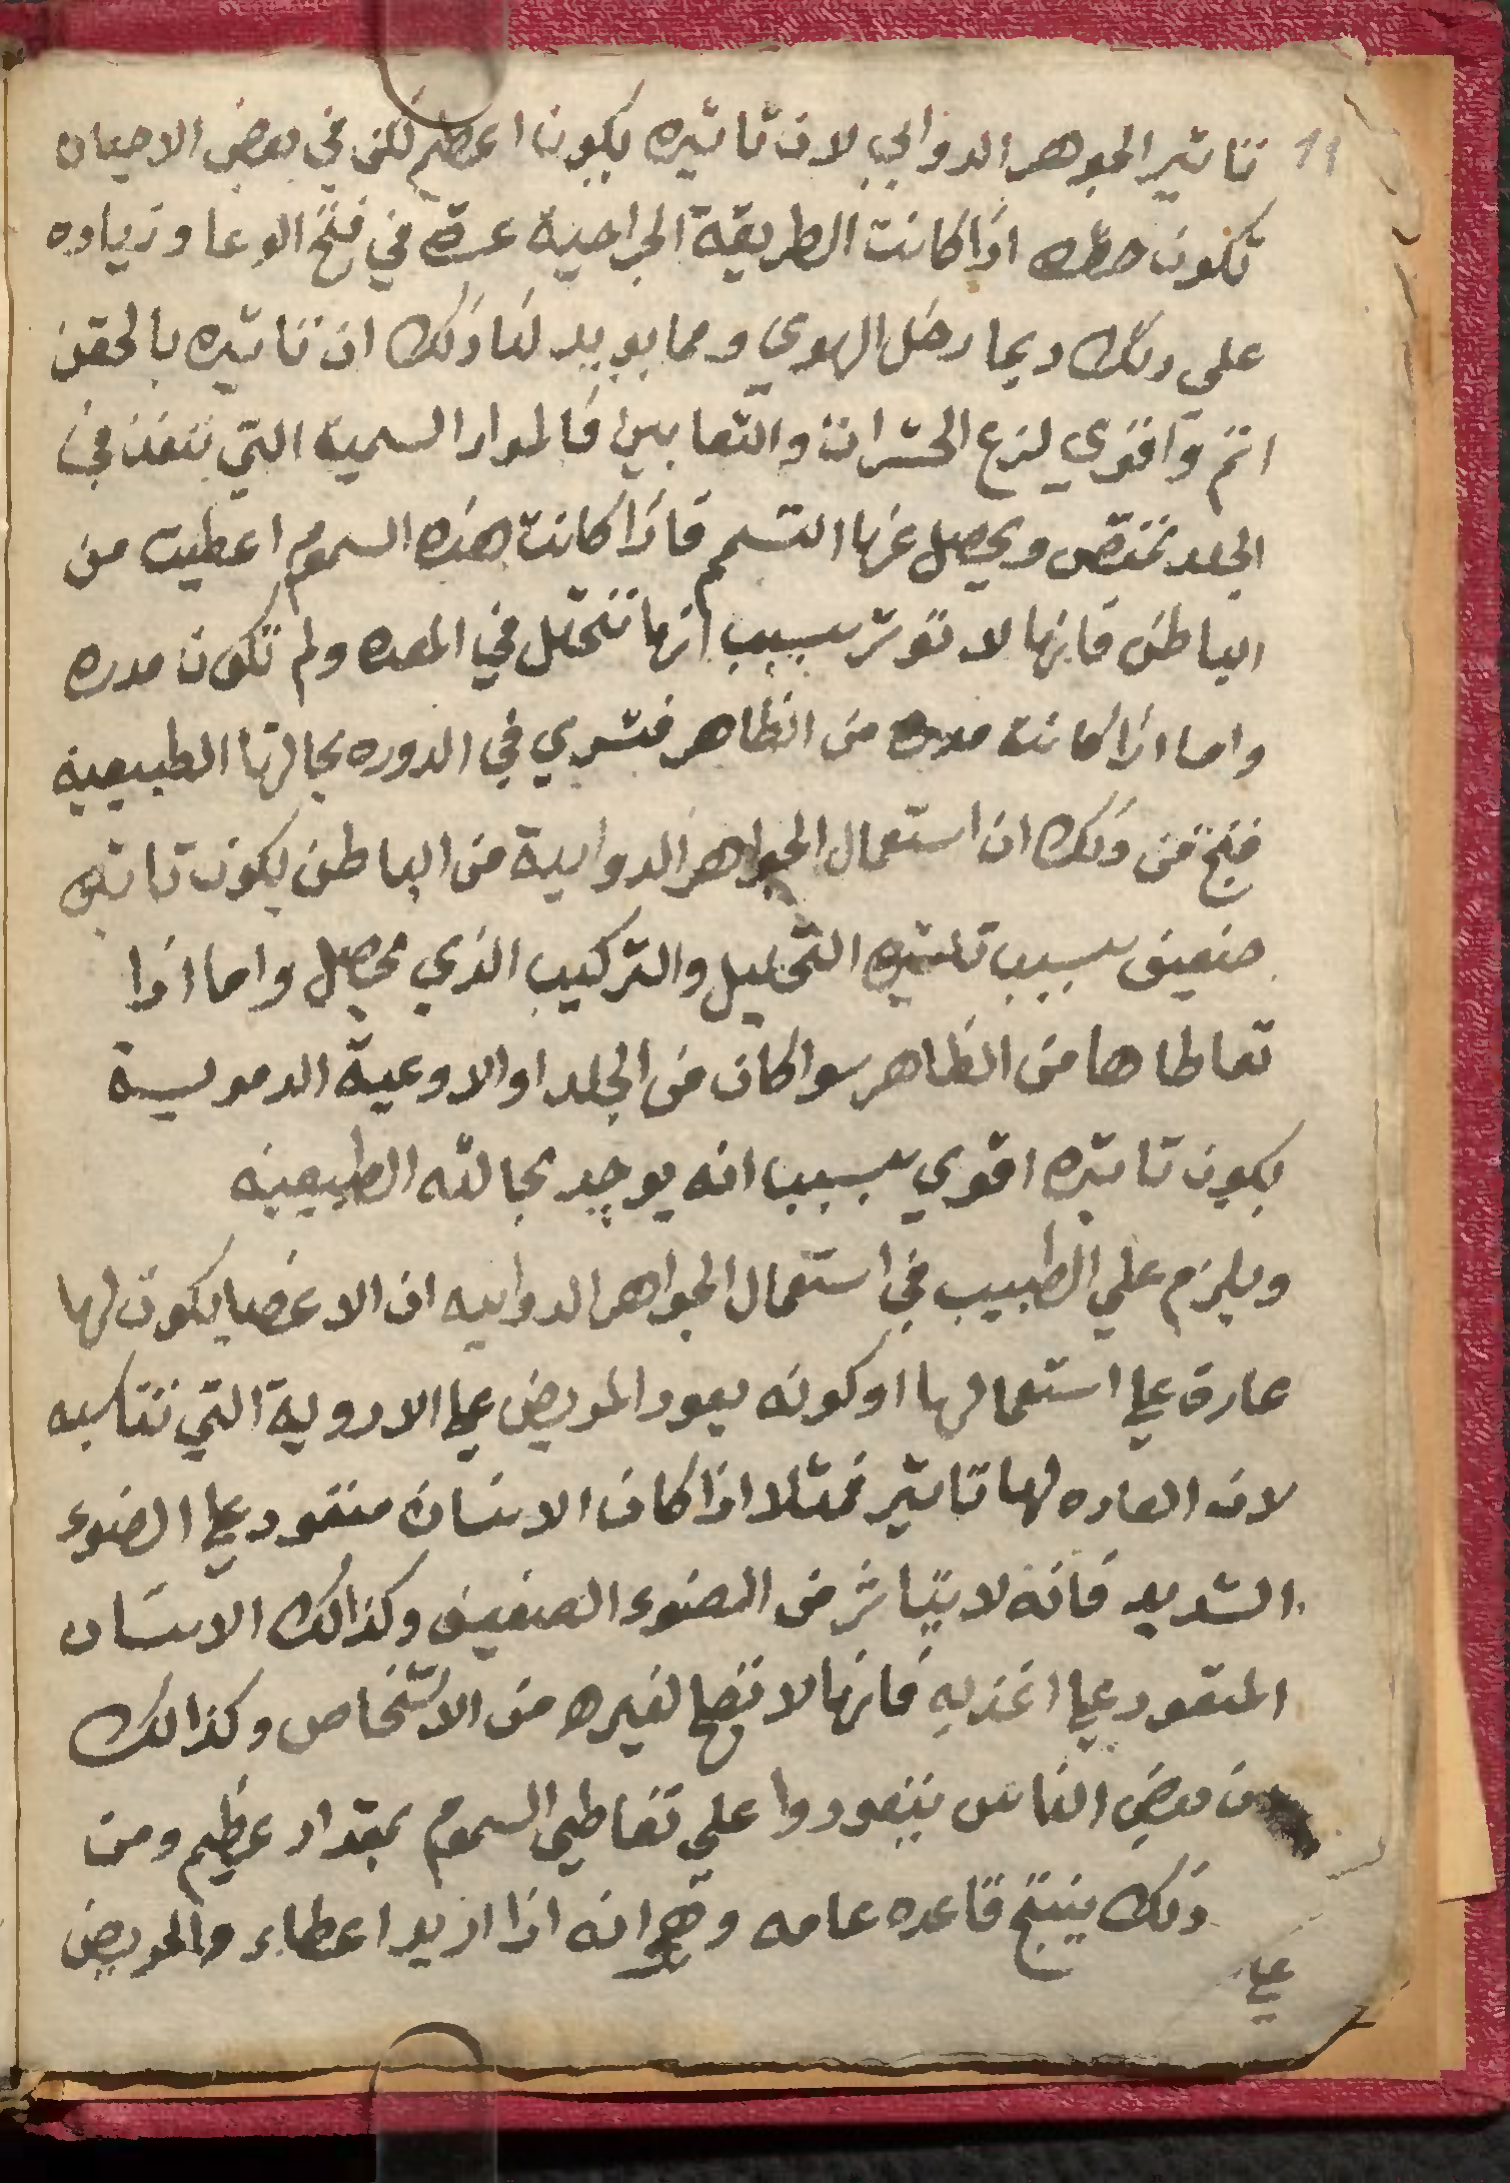 11
تاثير الجوهر الدوايي لان تاثيره يكون اعظم لكن في بعض الاحيان
تكون خطره اذا كانت الطريقة الجراحية عسرة في فتح الوعا وزياده
علي ذلك ربما دخل الهوي ومما يويد لنا ذلك ان تاثيره بالحقن
اتم واقوي لزع الحشرات والثعابين فالمواد السمية التي تنفذ في
الجلد تمتص ويحصل عنها التسمم فاذا كانت هذه السموم اعطيت من
الباطن فانها لا توثر بسبب انها تنحل في المعده ولم تكون مدره
واما اذا كانت من الظاهر فتسري في الدوره بحالتها الطبيعية
فنتج من ذلك ان استعمال الجواهر الدوايية من الباطن يكون تاثيره
ضعيف بسبب تاثيره التحليل والتركيب الذي يحصل واما اذا
تعاطاها من الظاهر سوا كان من الجلد او الاوعية الدموية
يكون تاثيره اقوي بسبب انه يوجد بحالته الطبيعيه
ويلزم علي الطبيب في استعمال الجواهر الدواييه ان الاعضا يكون لها
عادة علي استعمالها او كونه يعود المريض علي الادوية التي تناسبه
لان العاده لها تاثير فمثلا اذا كان الانسان متعود علي الضوء
الشديد فانه لا يتاثر من الضوء الضعيف وكذالك الانسان
المتعود علي اغذيه فانها لا تصلح لغيره من الاشخاص وكذالك
من بعض الناس يتعودوا علي تعاطي السموم بمقدار عظيم ومن
ذلك ينتج قاعده عامه وهي انه اذا اريد اعطاء والمريض
علي